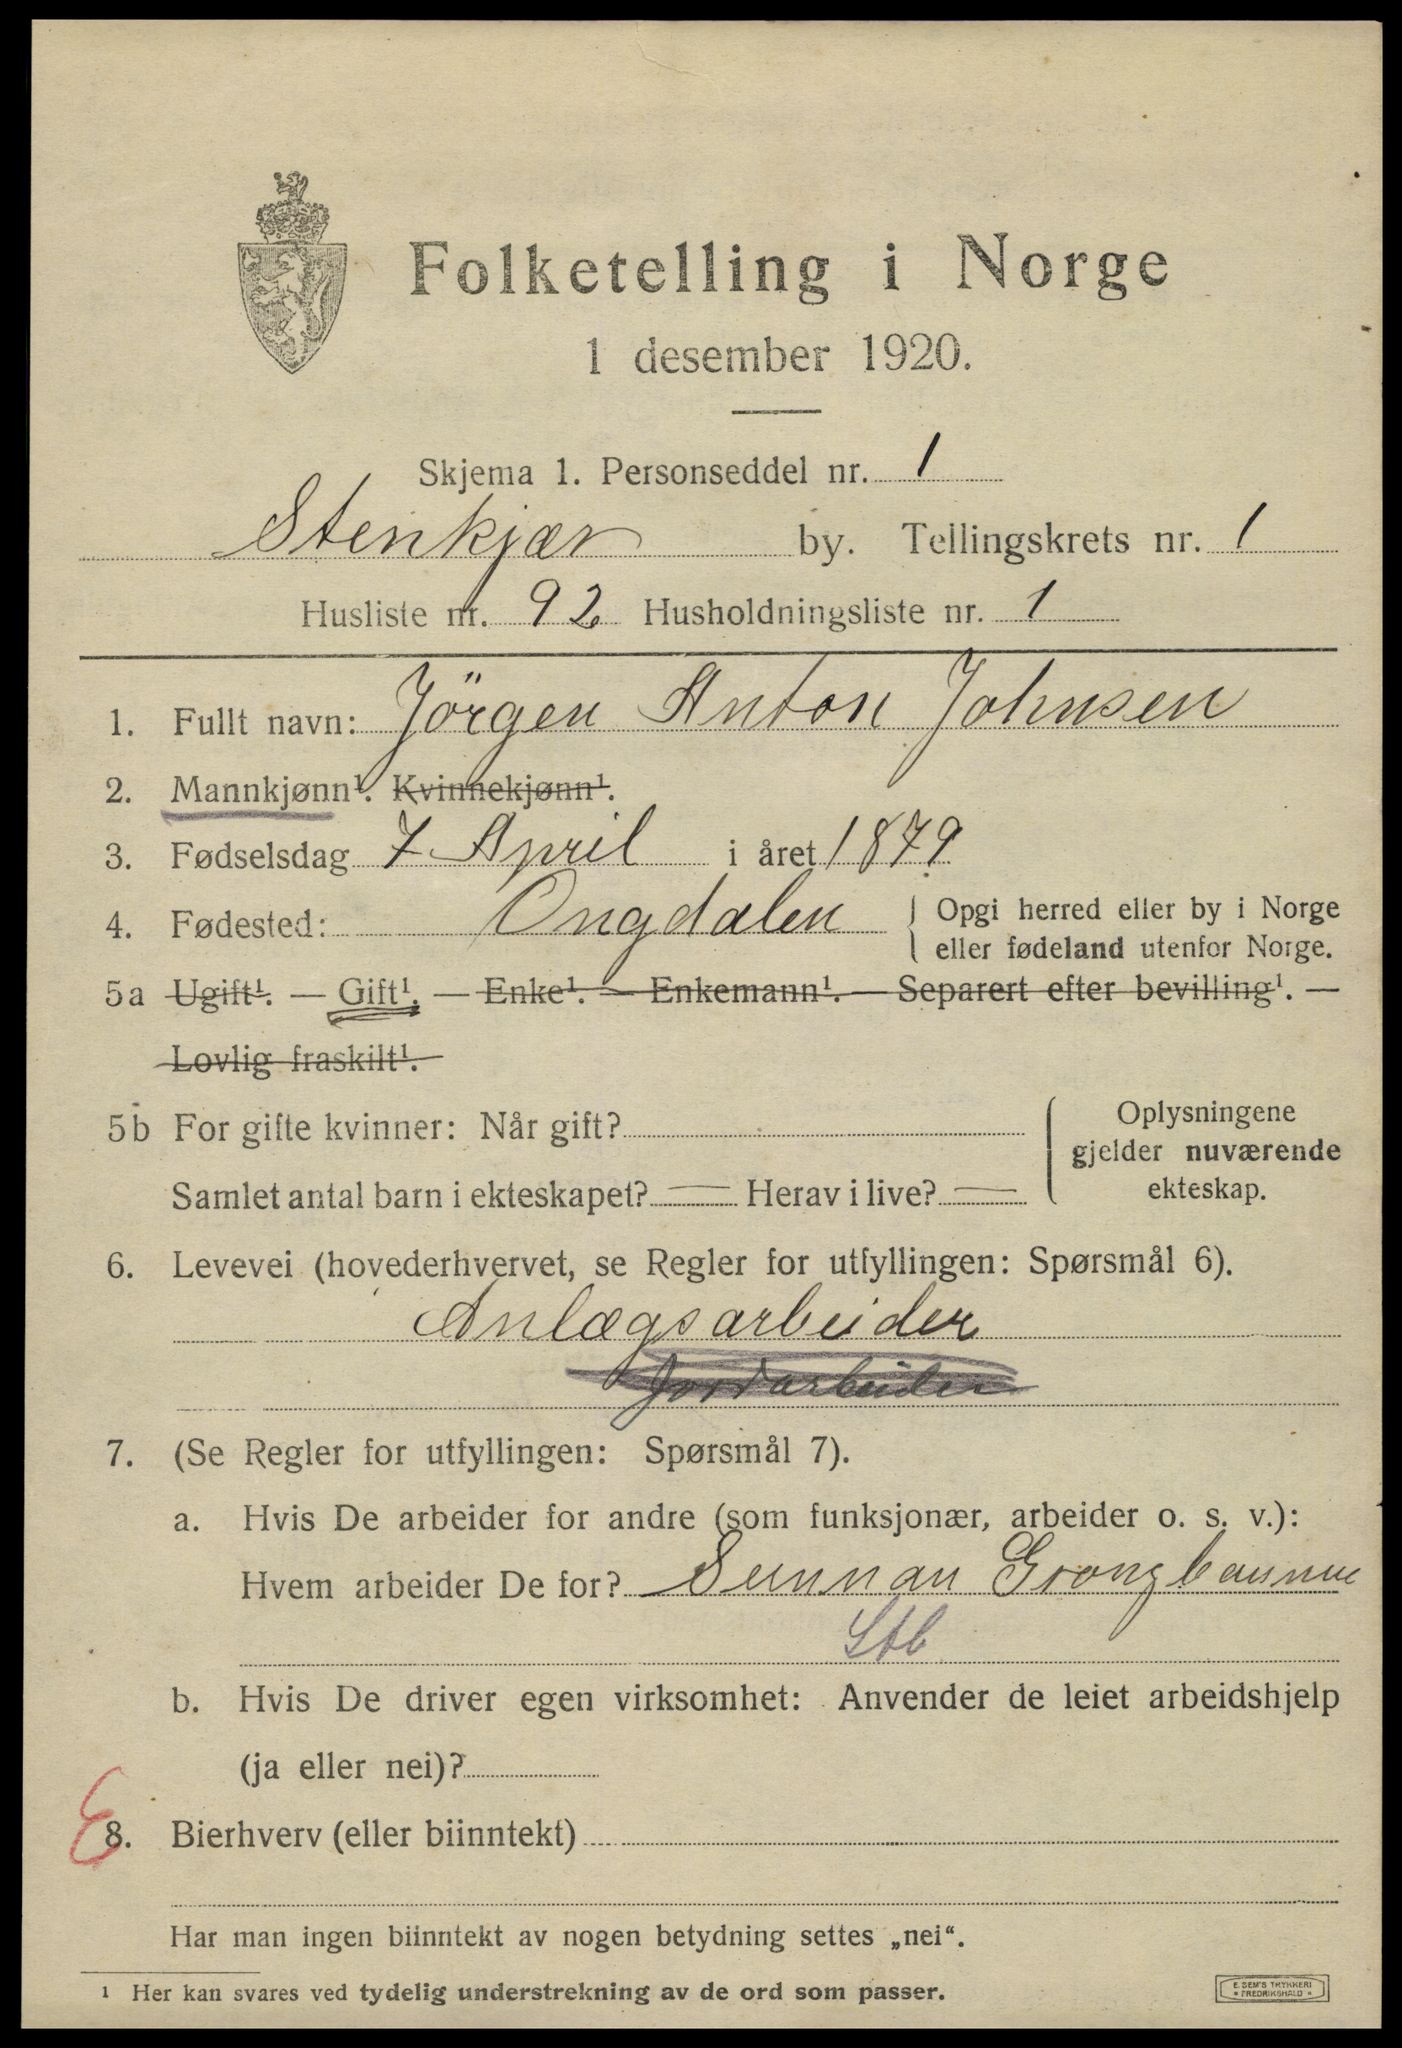 Folketelling i Norge
1 desember 1920.
Skjema 1. Personseddel nr. 1
Stenkjær by. Tellingskrets nr. 1
Husliste nr. 92 Husholdningsliste nr. 1
1. Fullt navn: Jörgen Anton Johnsen
2. Mannkjønn¹. Kvinnekjønn¹.
3. Fødselsdag 7 April i året 1879
4. Fødested: Ongdalen { Opgi herred eller by i Norge
eller fødeland utenfor Norge.
5a Ugift¹. — Gift¹. — Enke¹. — Enkemann¹. — Separert efter bevilling¹. —
Lovlig fraskilt¹.
5b For gifte kvinner: Når gift?
Samlet antal barn i ekteskapet? — Herav i live? —
{ Oplysningene
gjelder nuværende
ekteskap.
6. Levevei (hovederhvervet, se Regler for utfyllingen: Spørsmål 6).
Anlægsarbeider
Jordarbeider
7. (Se Regler for utfyllingen: Spørsmål 7).
a. Hvis De arbeider for andre (som funksjonær, arbeider o. s. v.):
Hvem arbeider De for? Sunnan Grongbanene
Stb
b. Hvis De driver egen virksomhet: Anvender de leiet arbeidshjelp
(ja eller nei)?
E
8. Bierhverv (eller biinntekt)
Har man ingen biinntekt av nogen betydning settes „nei“.
¹ Her kan svares ved tydelig understrekning av de ord som passer.
E. SEM'S TRYKKERI
* FREDRIKSHALD *